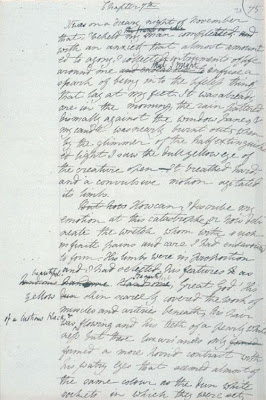 Chapter 7th
75
It was on a dreary night of November
that I beheld my man completed and
with an anxiety that almost amount
ed to agony I collected instruments of life
around me that I might infuse a
spark of being into the lifeless thing
that lay at my feet. It was already
one in the morning, the rain pattered
dismally against the window panes, &
my candle was nearly burnt out, when
by the glimmer of the half extinguish
ed light I saw the dull yellow eye of
the creature open. It breathed hard,
and a convulsive motion agitated
its limbs.
But how How can I describe my
emotion at this catastrophe; or how deli
neate the wretch whom with such
infinite pains and care I had endeavoured
to form. His limbs were in proportion
and I had selected his features as
beautiful handsome Great God! His
yellow skin scarcely covered the work of
muscles and arteries beneath; his hair
of a lustrous black &
was flowing and his teeth of a pearly white
ness but these luxuriances only
formed a more horrid contrast with
his watry eyes that seemed almost of
the same colour as the dun white
sockets in which they were set,